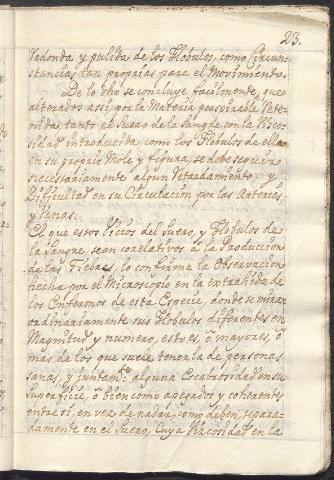 23.
redonda y pulida de los Globulos, como circun-
stancias tan propias para el Movimiento.
De lo dho se concluye facilmente, que
alterados assi, por la Materia perspirable Rete-
nida, tanto el Suero de la Sangre con la Visco-
sidad introducida, como los Globulos de ella
en su propia Mole y figura, se debe seguir
necessariamente algun retardamiento y
Dificultad en su Circulacion por las Arterias,
y Venas.
El que estos vicios del Suero, y Globulos de
la Sangre, sean corelativos à la Produccion
de las Fiebres, lo confirma la Observacion
hecha por el Microscopio en la extrahida de
los Enfermos de esta Especie, donde se miran
ordinariamente sus Globulos diferentes en
Magnitud y numero, esto es, ò mayores, ò
mas de los que suele tenerla de personas
sanas, y juntamte. alguna Escabrosidad en su
Superficie, ò bien como apegados y coherentes
entre si, en vez de nadar, como deben, separa-
damente en el Suero, Cuya Viscosidad en la